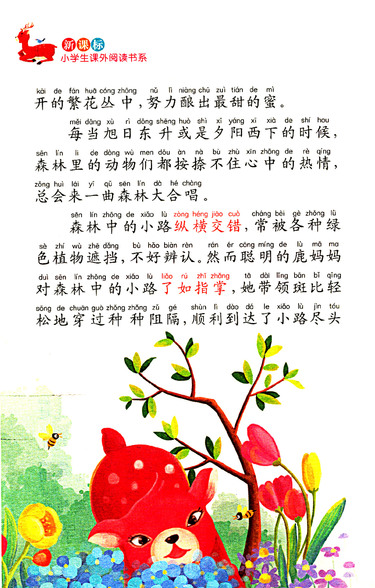 新课标
小学生课外阅读书系
kāi de fán huā cóng zhōng nǔ lì niàng chū zuì tián de mì
开的繁花丛中,努力酿出最甜的蜜。
měi dāng xù rì dōng shēng huò shì xī yáng xī xià de shí hou
每当旭日东升或是夕阳西下的时候,
sēn lín lǐ de dòng wù men dōu àn nà bù zhù xīn zhōng de rè qíng
森林里的动物们都按捺不住心中的热情,
zǒng huì lái yī qǔ sēn lín dà hé chàng
总会来一曲森林大合唱。
sēn lín zhōng de xiǎo lù zòng héng jiāo cuò cháng bèi gè zhǒng lǜ
森林中的小路纵横交错,常被各种绿
sè zhí wù zhē dǎng bù hǎo biàn rèn rán ér cōng míng de lù mā ma
色植物遮挡,不好辨认。然而聪明的鹿妈妈
duì sēn lín zhōng de xiǎo lù liǎo rú zhǐ zhǎng tā dài lǐng bān bǐ qīng
对森林中的小路了如指掌,她带领斑比轻
sōng de chuān guò zhǒng zhǒng zǔ gé shùn lì dào dá le xiǎo lù jìn tóu
松地穿过种种阻隔,顺利到达了小路尽头